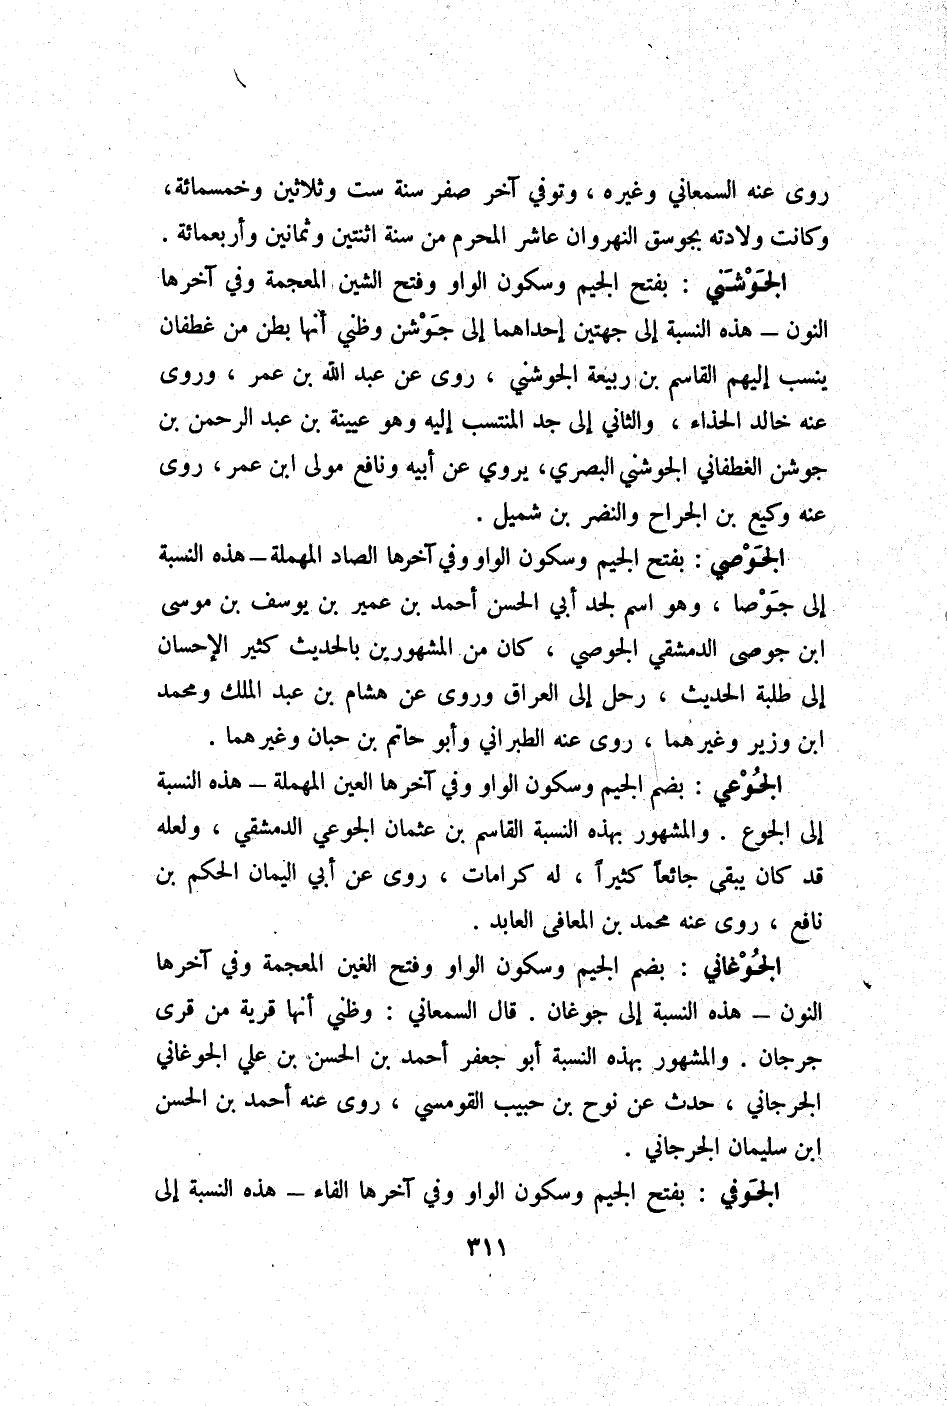 روى عنه السمعاني وغيره ، وتوفي آخر صفر سنة ست وثلاثين وخمسمائة ،
وكانت ولادته بجوسق النهروان عاشر المحرم من سنة اثنتين وثمانين وأربعمائة .
الجَوْشَني : بفتح الجيم وسكون الواو وفتح الشين المعجمة وفي آخرها
النون – هذه النسبة إلى جهتين إحداهما إلى جَوْشن وظني أنها بطن من غطفان
ينسب إليهم القاسم بن ربيعة الجوشني ، روى عن عبد الله بن عمر ، وروى
عنه خالد الحذاء ، والثاني إلى جد المنتسب إليه وهو عيينة بن عبد الرحمن بن
جوشن الغطفاني الجوشني البصري ، يروي عن أبيه ونافع مولى ابن عمر ، روى
عنه وكيع بن الجراح والنضر بن شميل .
الجَوْصي : بفتح الجيم وسكون الواو وفي آخرها الصاد المهملة – هذه النسبة
إلى جَوْصا ، وهو اسم لجد أبي الحسن أحمد بن عمير بن يوسف بن موسى
ابن جوصى الدمشقي الجوصي ، كان من المشهورين بالحديث كثير الإحسان
إلى طلبة الحديث ، رحل إلى العراق وروى عن هشام بن عبد الملك ومحمد
ابن وزير وغيرهما ، روى عنه الطبراني وأبو حاتم بن حبان وغيرهما .
الجُوْعي : بضم الجيم وسكون الواو وفي آخرها العين المهملة – هذه النسبة
إلى الجوع . والمشهور بهذه النسبة القاسم بن عثمان الجوعي الدمشقي ، ولعله
قد كان يبقى جائعاً كثيراً ، له كرامات ، روى عن أبي اليمان الحكم بن
نافع ، روى عنه محمد بن المعافى العابد .
الجُوْغاني : بضم الجيم وسكون الواو وفتح الغين المعجمة وفي آخرها
النون – هذه النسبة إلى جوغان . قال السمعاني : وظني أنها قرية من قرى
جرجان . والمشهور بهذه النسبة أبو جعفر أحمد بن الحسن بن علي الجوغاني
الجرجاني ، حدث عن نوح بن حبيب القومسي ، روى عنه أحمد بن الحسن
ابن سليمان الجرجاني .
الجَوفي : بفتح الجيم وسكون الواو وفي آخرها الفاء – هذه النسبة إلى
٣١١